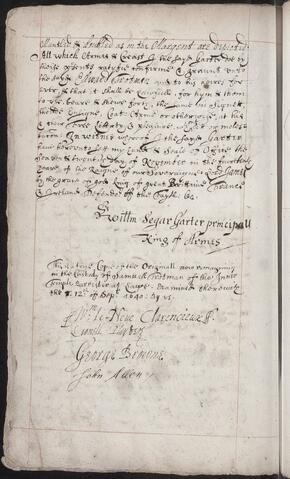 Mantled & doubled as in the Margent are depicted
All which Armes & Creast I the sayd Garter doe by
theise presents ratifie confirme & graunt unto
the sayd Samuel and to his heires for
ever & that it shall be lawfull for hym & them
to use beare & shewe forth the same in signet
shield Ensigne Coat Armor or otherwise at his
& their free liberty & pleasure
In witnes wherof I the sayd Garter
have hereunto sett my hand & Seale of Office the
seaven & twentie day of November in the
yeare of the Reigne of our Soveraigne Lord James
by the grace of god King of great Brittaine France
& Ireland Defender of the faith &c.
Willm Segar Garter principall
King of Armes
This is a true Copie of the Originall now remayning
in the Custody of Samuell of the Inner
Temple Barrister at Lawe. Examined therewith
the 12th of Sept 1640 by us.
Wm Le Neve Clarencieux
George Browne
John Allen